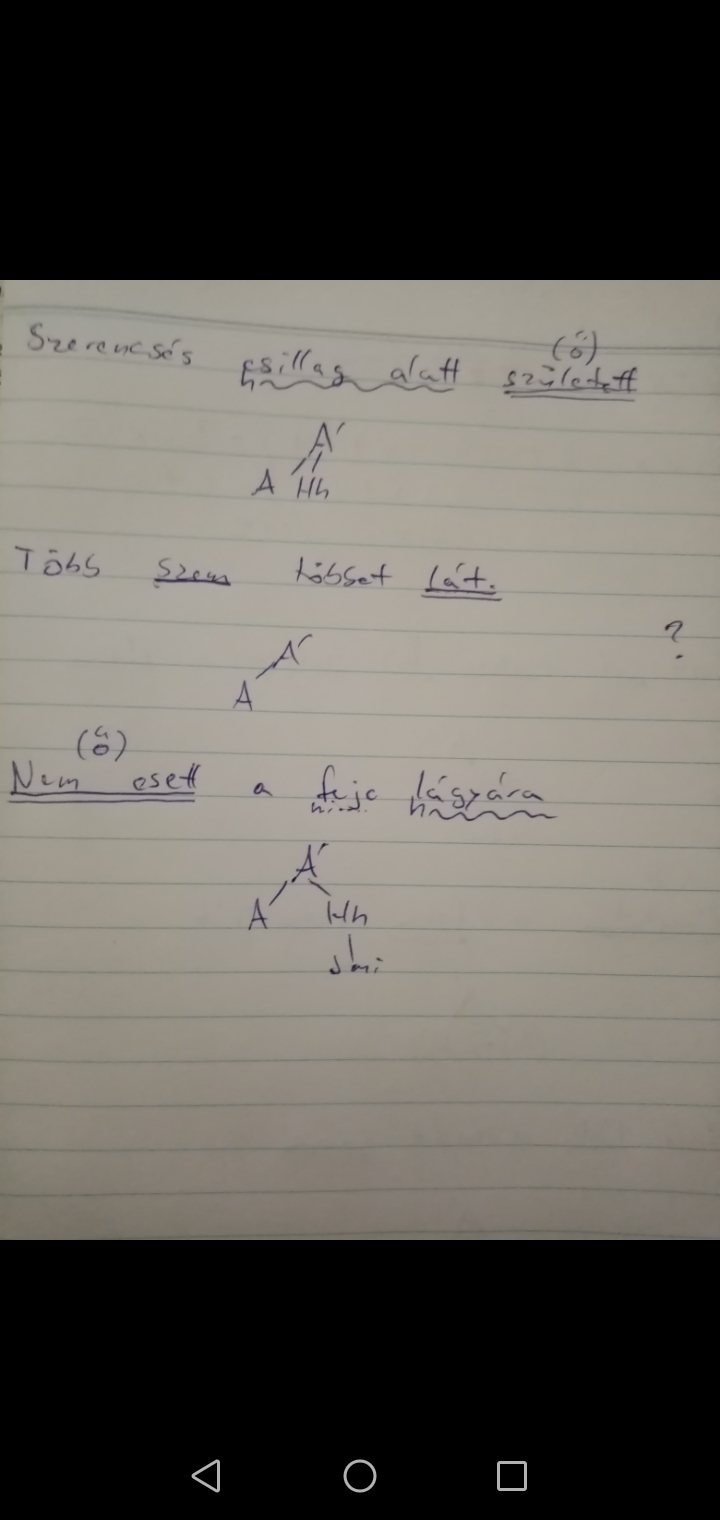 (ő)
Szerencsés csillag alatt született
h
Á
A Hh
Több szem többet lát.
?
Á
A
(ő)
Nem esett a feje lágyára
h
Á
A Hh